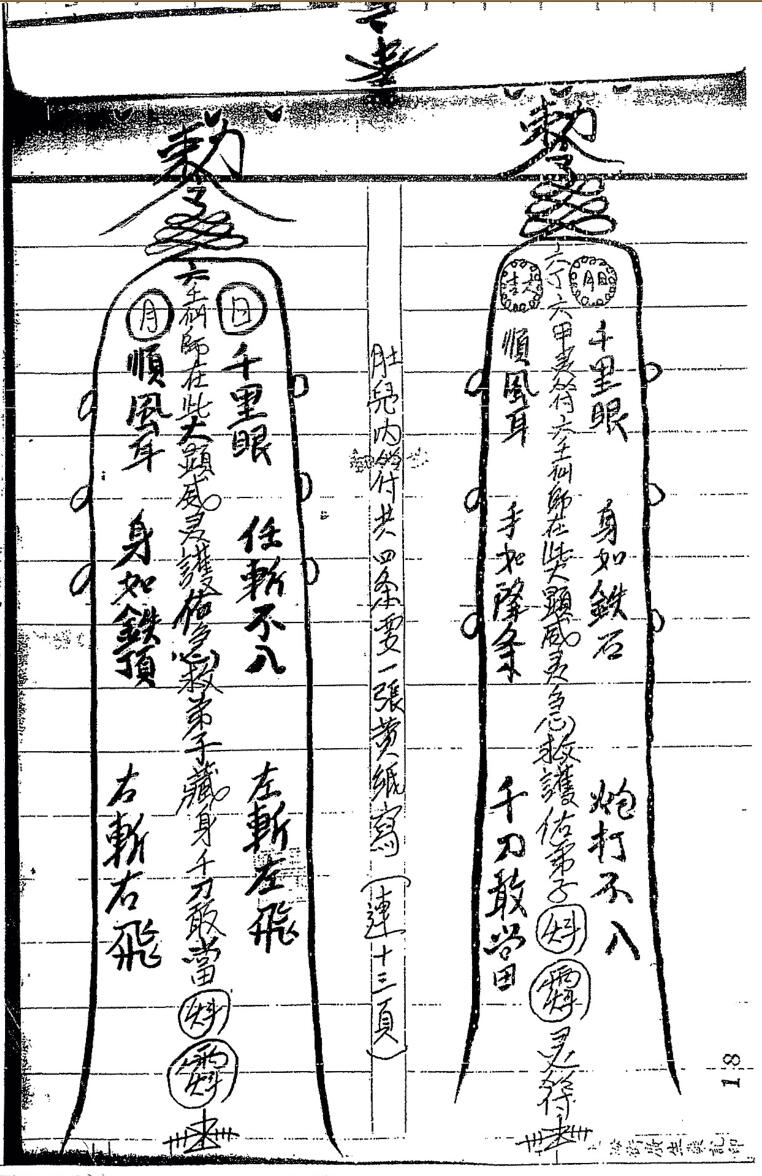 勅令
六丁六甲灵符六壬仙師在此大顯威灵急救護佑弟子
灵符
日月
千里眼
身如鉄石
炮打不入
順風耳
手如降条
千刀敢当
肚兜内符共四条要一張黄紙寫(連十三頁)
勅令
六壬仙師在此大顯威灵護佑急救弟子藏身千刀敢當
日
千里眼
任斬不入
左斬左飛
月
順風耳
身如鉄頂
右斬右飛
18